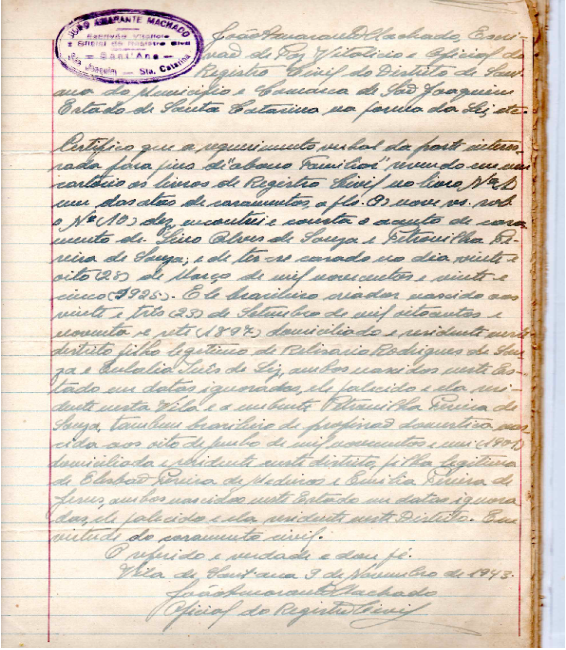 JOÃO AMARANTE MACHADO
Escrivão Vitalicio
e Oficial do Registro Civil
Sant'Ana
São Joaquim - Sta. Catarina
João Amarante Machado, Escri-
vão de Paz Vitalicio e Oficial do
Registro Civil do Distrito de San-
ana do Municipio e Comarca de São Joaquim
Estado de Santa Catarina na forma da Lei, etc.
Certifico que a requerimento verbal da parte interes-
sada para fins de "abono Familiar" revendo em meu
cartorio os livros de Registro Civil no livro Nº
um das atas de casamentos, a fls. 9) nove vs. sob
o Nº (10) dez, encontrei e consta o assento de casa-
mento de Lino Alves de Souza e Petronilha Pe-
reira de Souza, e de ter-se casado no dia vinte e
oito (28) de Março de mil novecentos e vinte e
cinco (1925). Ele brasileiro criador nascido aos
vinte e três (23) de Setembro de mil oitocentos e
noventa e sete (1897) domiciliado e residente neste
distrito filho legitimo de Rodrigues de Sou-
za e Eulalia de Liz, ambos nascidos neste Es-
tado em datas ignoradas, ele falecido e ela resi-
dente nesta Vila e a nubente Petronilha Pereira de
Souza, tambem brasileira de profissão domestica, nas-
cida aos oito de Junho de mil novecentos e um (1901)
domiciliada e residente neste distrito, filha legitima
de Pereira de Medeiros e Emilia Pereira de
Jesus, ambos nascidos neste Estado em datas ignora-
das, ele falecido e ela residente neste Distrito. Em
virtude do casamento civil.
O referido é verdade e dou fé.
Vila de Sant'ana 9 de Novembro de 1943.
João Amarante Machado
Oficial do Registro Civil